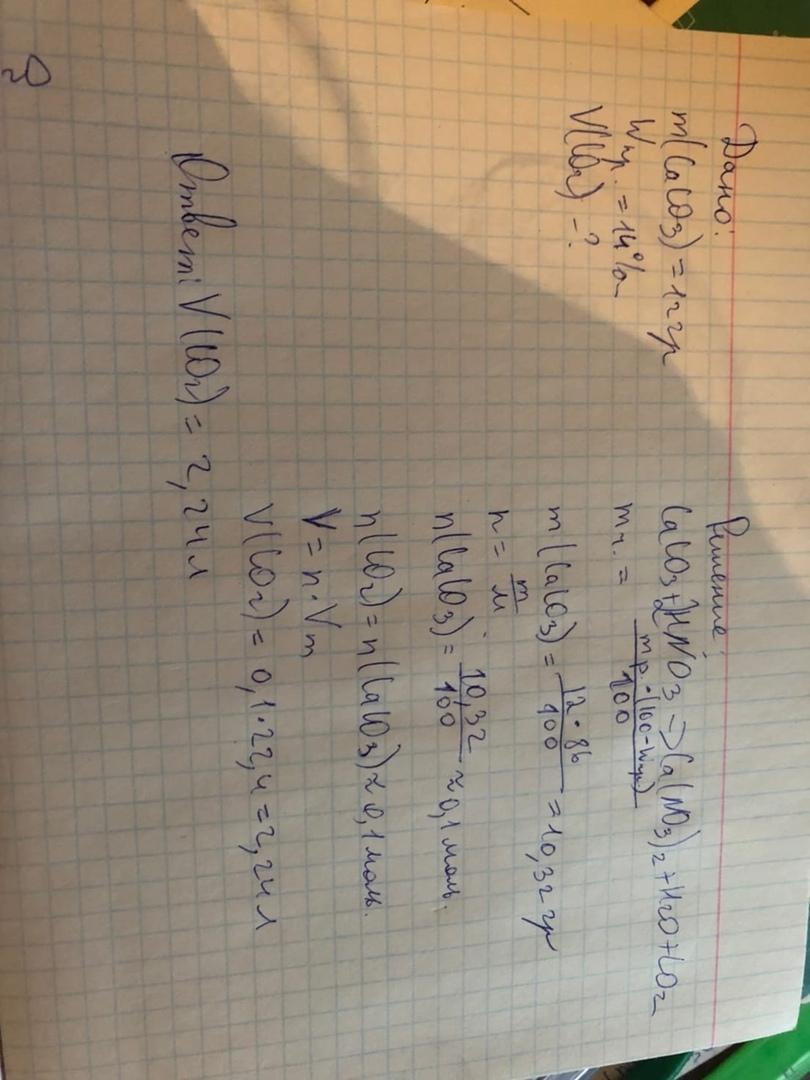 Дано:
m(CaCO3) = 12 гр
Wпр. = 14%
V(CO2) - ?
Решение:
CaCO3 + 2HNO3 → Ca(NO3)2 + H2O + CO2
mч. = mр · (100 - Wпр) / 100
m(CaCO3) = 12 · 86 / 100 = 10,32 гр
n = m / M
n(CaCO3) = 10,32 / 100 ≈ 0,1 моль.
n(CO2) = n(CaCO3) ≈ 0,1 моль.
V = n · Vm
V(CO2) = 0,1 · 22,4 = 2,24 л
Ответ: V(CO2) = 2,24 л